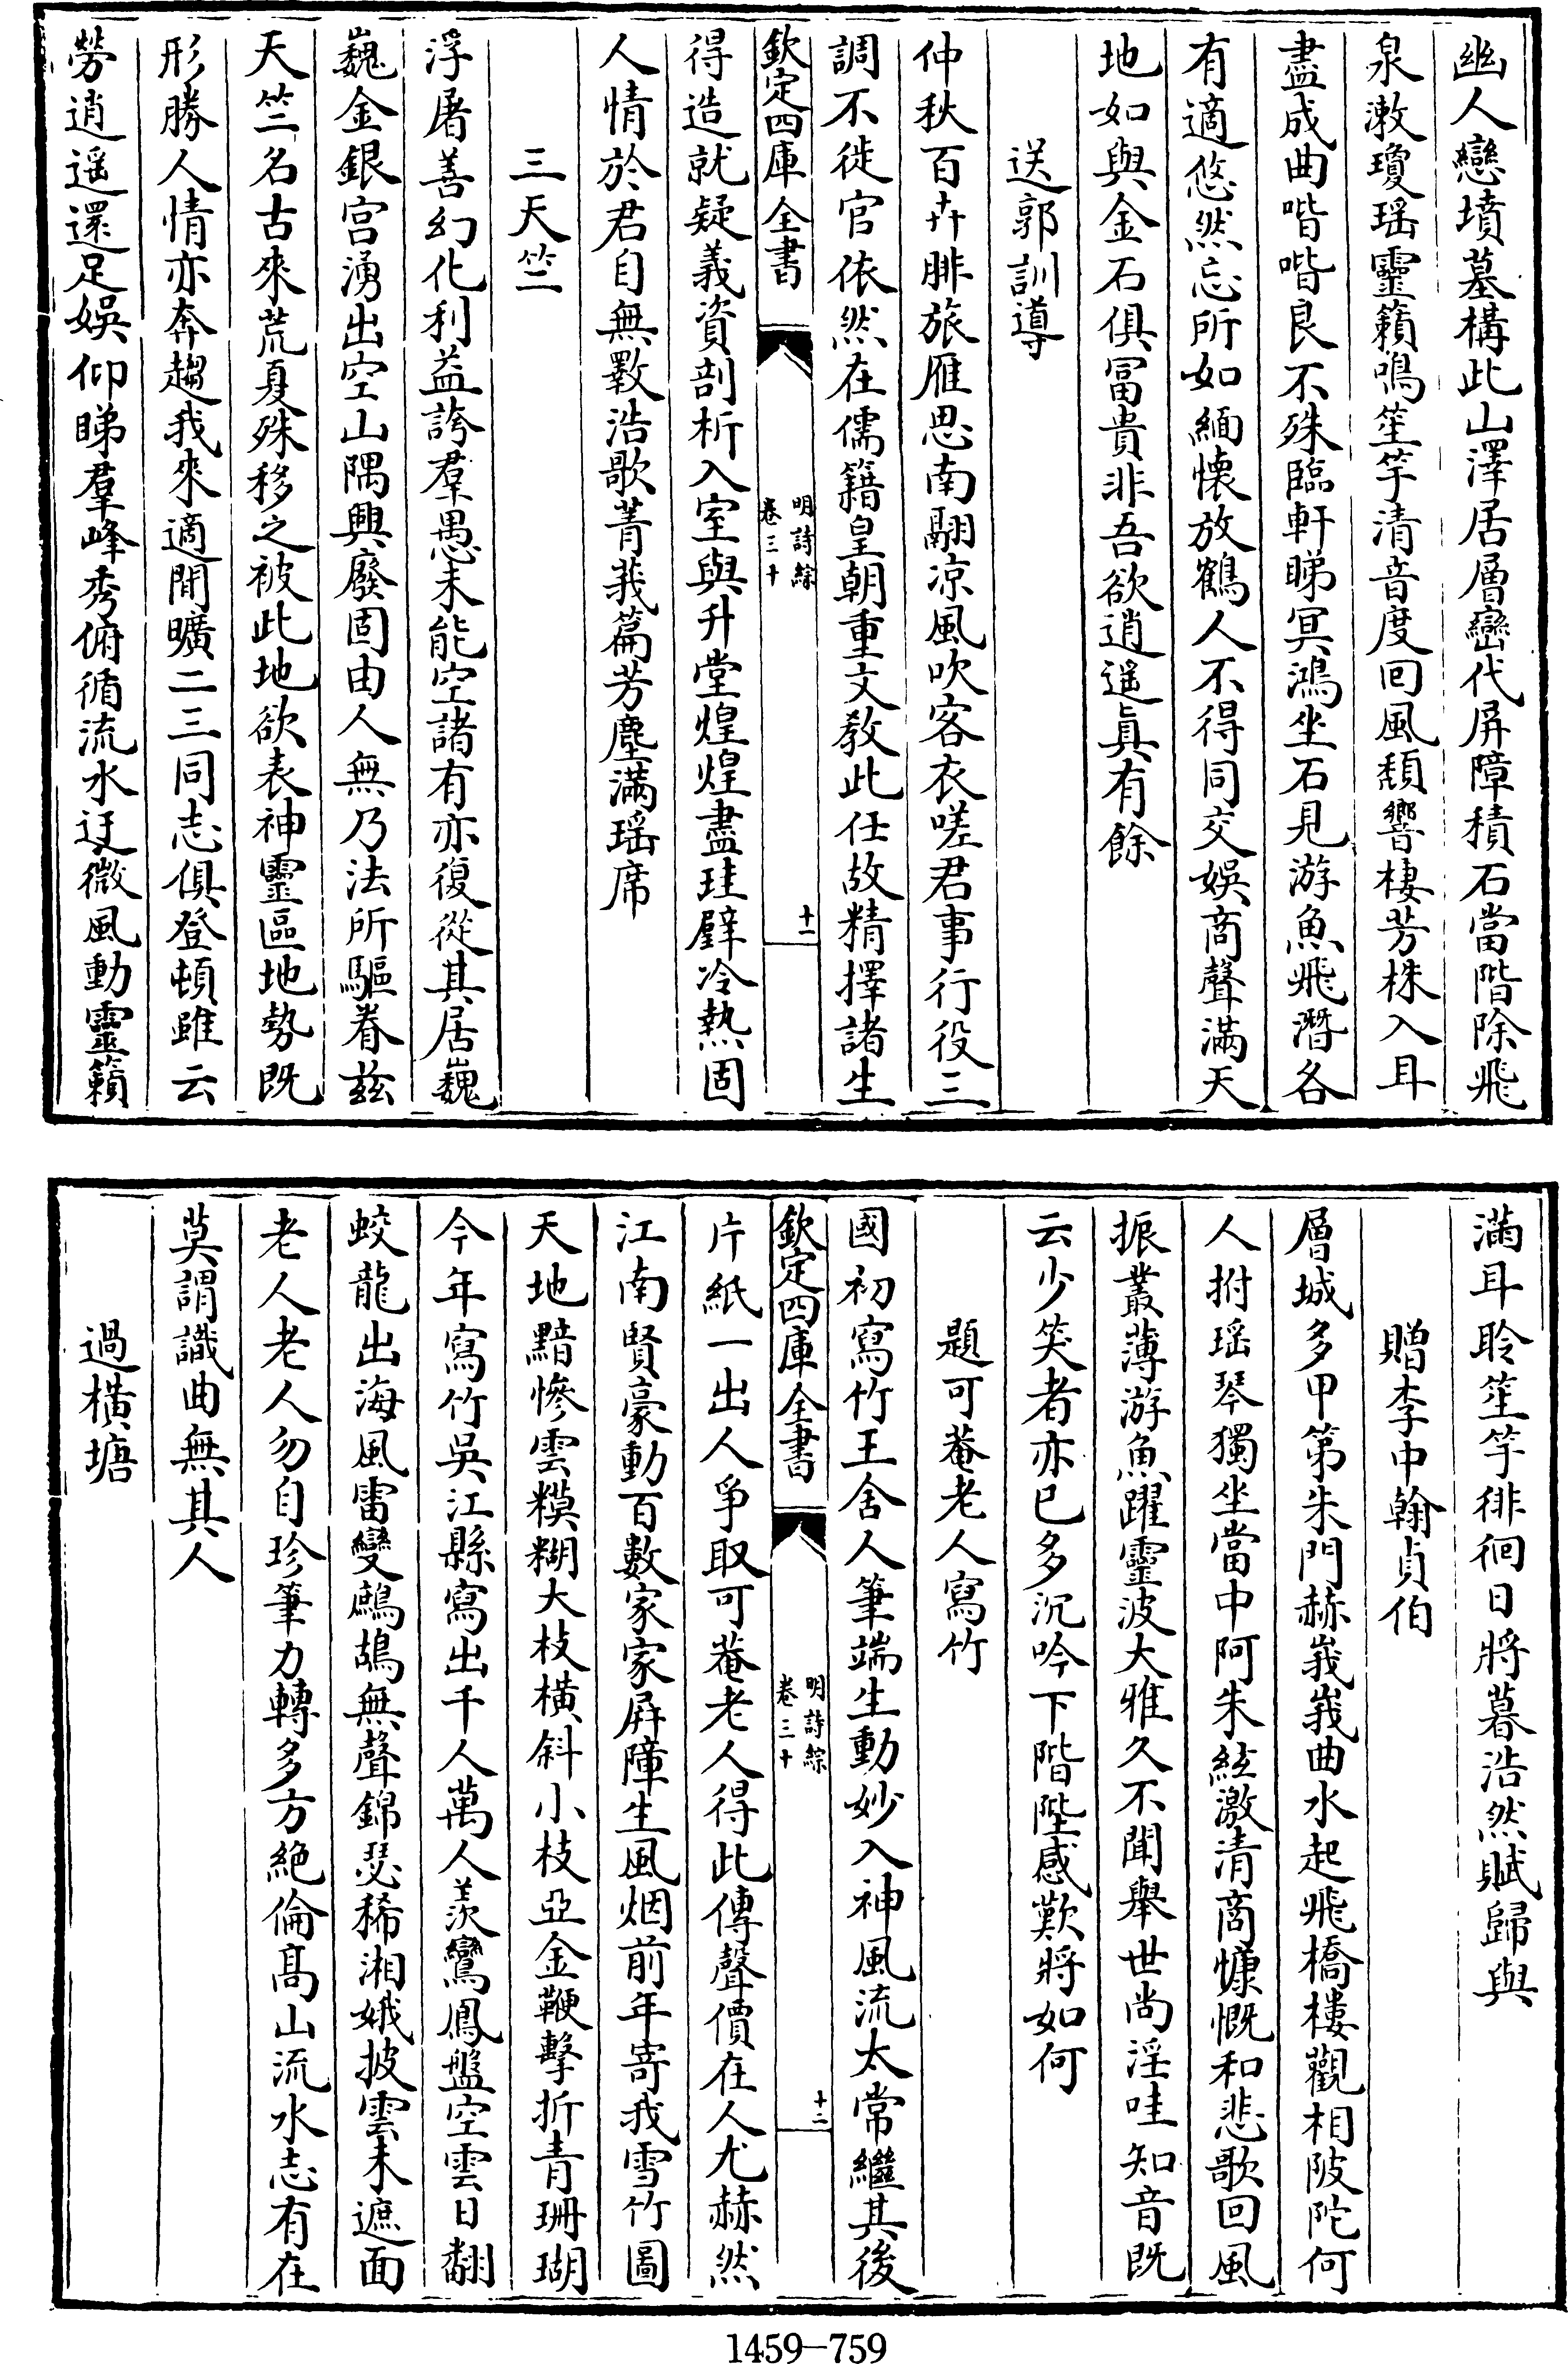 幽人戀墳墓構此山澤居層巒代屏障積石當階除飛
泉漱瓊瑶靈籟鳴笙竽清音度回風頽響棲芳株入耳
盡成曲喈喈良不殊臨軒睇冥鴻坐石見游魚飛潛各
有適悠然忘所如緬懷放鶴人不得同交娛商聲滿天
地如與金石俱冨貴非吾欲逍遥真有餘
送郭訓導
仲秋百卉腓旅雁思南翩凉風吹客衣嗟君事行役三
調不徙官依然在儒籍皇朝重文教此任故精擇諸生
欽定四庫全書
明詩綜
卷三十
十一
得造就疑義資剖析入室與升堂煌煌盡珪璧冷熱固
人情於君自無斁浩歌菁莪篇芳塵滿瑶席
三天竺
浮屠善幻化利益誇羣愚未能空諸有亦復從其居巍
巍金銀宫湧出空山隅興廢固由人無乃法所驅眷兹
天竺名古來荒夏殊移之被此地欲表神靈區地勢既
形勝人情亦奔趨我來適閒曠二三同志俱登頓雖云
勞逍遥還足娛仰睇羣峰秀俯循流水迂微風動靈籟
滿耳聆笙竽徘徊日將暮浩然賦歸與
贈李中翰貞伯
層城多甲第朱門赫峩峩曲水起飛橋樓觀相陂陀何
人拊瑶琴獨坐當中阿朱絃激清商慷慨和悲歌回風
振叢薄游魚躍靈波大雅久不聞舉世尚淫哇知音既
云少笑者亦已多沉吟下階陛感歎將如何
題可菴老人寫竹
國初寫竹王舍人筆端生動妙入神風流太常繼其後
欽定四庫全書
明詩綜
卷三十
十二
片紙一出人爭取可菴老人得此傳聲價在人尤赫然
江南賢豪動百數家家屏障生風烟前年寄我雪竹圖
天地黯慘雲糢糊大枝橫斜小枝亞金鞭擊折青珊瑚
今年寫竹吳江縣寫出千人萬人羨鸞鳳盤空雲日翻
蛟龍出海風雷變鷓鴣無聲錦瑟稀湘娥披雲未遮面
老人老人勿自珍筆力轉多方絶倫髙山流水志有在
莫謂識曲無其人
過橫塘
1459-759